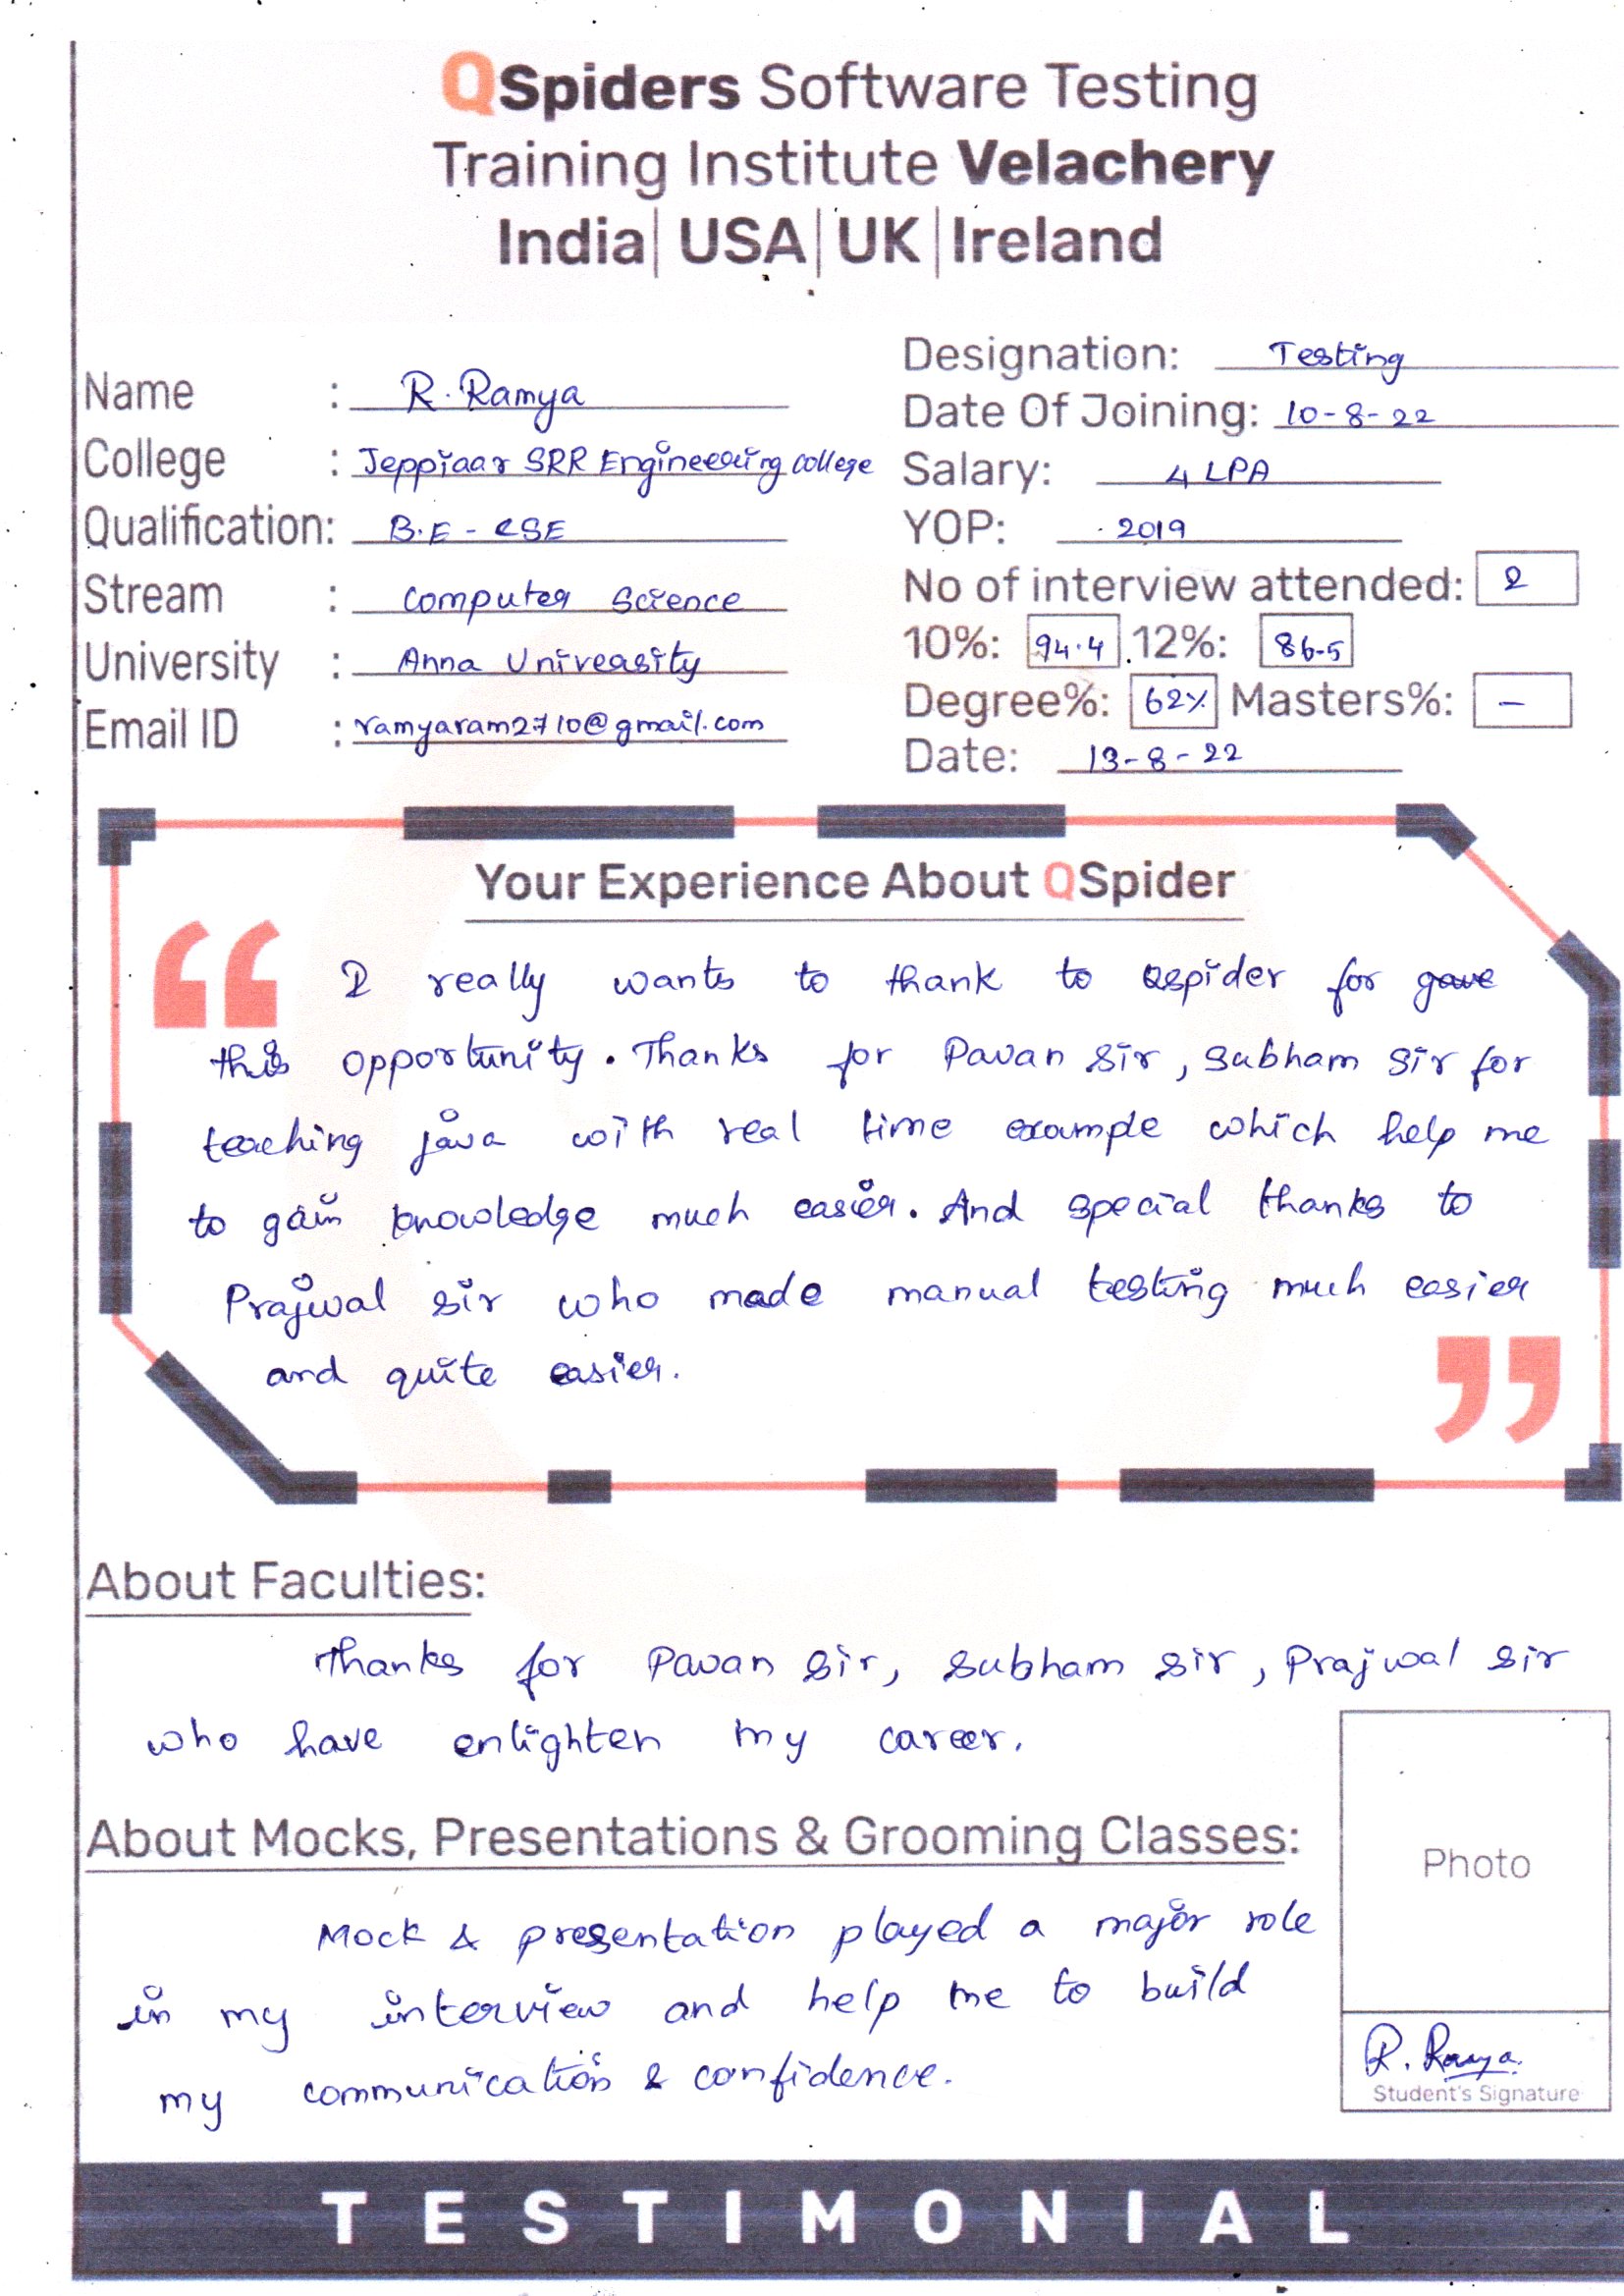 QSpiders Software Testing
Training Institute Velachery
India| USA| UK| Ireland
Name : R. Ramya
College : Jeppiaar SRR Engineering college
Qualification: B.E - CSE
Stream : Computer Science
University : Anna University
Email ID : ramyaram2710@gmail.com
Designation: Testing
Date Of Joining: 10-8-22
Salary: 4 LPA
YOP: 2019
No of interview attended: 2
10%: 94.4 12%: 86.5
Degree%: 62% Masters%: -
Date: 13-8-22
Your Experience About QSpider
“ I really wants to thank to Qspider for gave
this opportunity. Thanks for Pavan Sir, Subham Sir for
teaching java with real time example which help me
to gain knowledge much easier. And special thanks to
Prajwal sir who made manual testing much easier
and quite easier. ”
About Faculties:
Thanks for Pavan Sir, Subham sir, Prajwal sir
who have enlighten my career.
About Mocks, Presentations & Grooming Classes:
Mock & presentation played a major role
in my interview and help me to build
my communication & confidence.
Photo
R. Ramya
Student's Signature
TESTIMONIAL